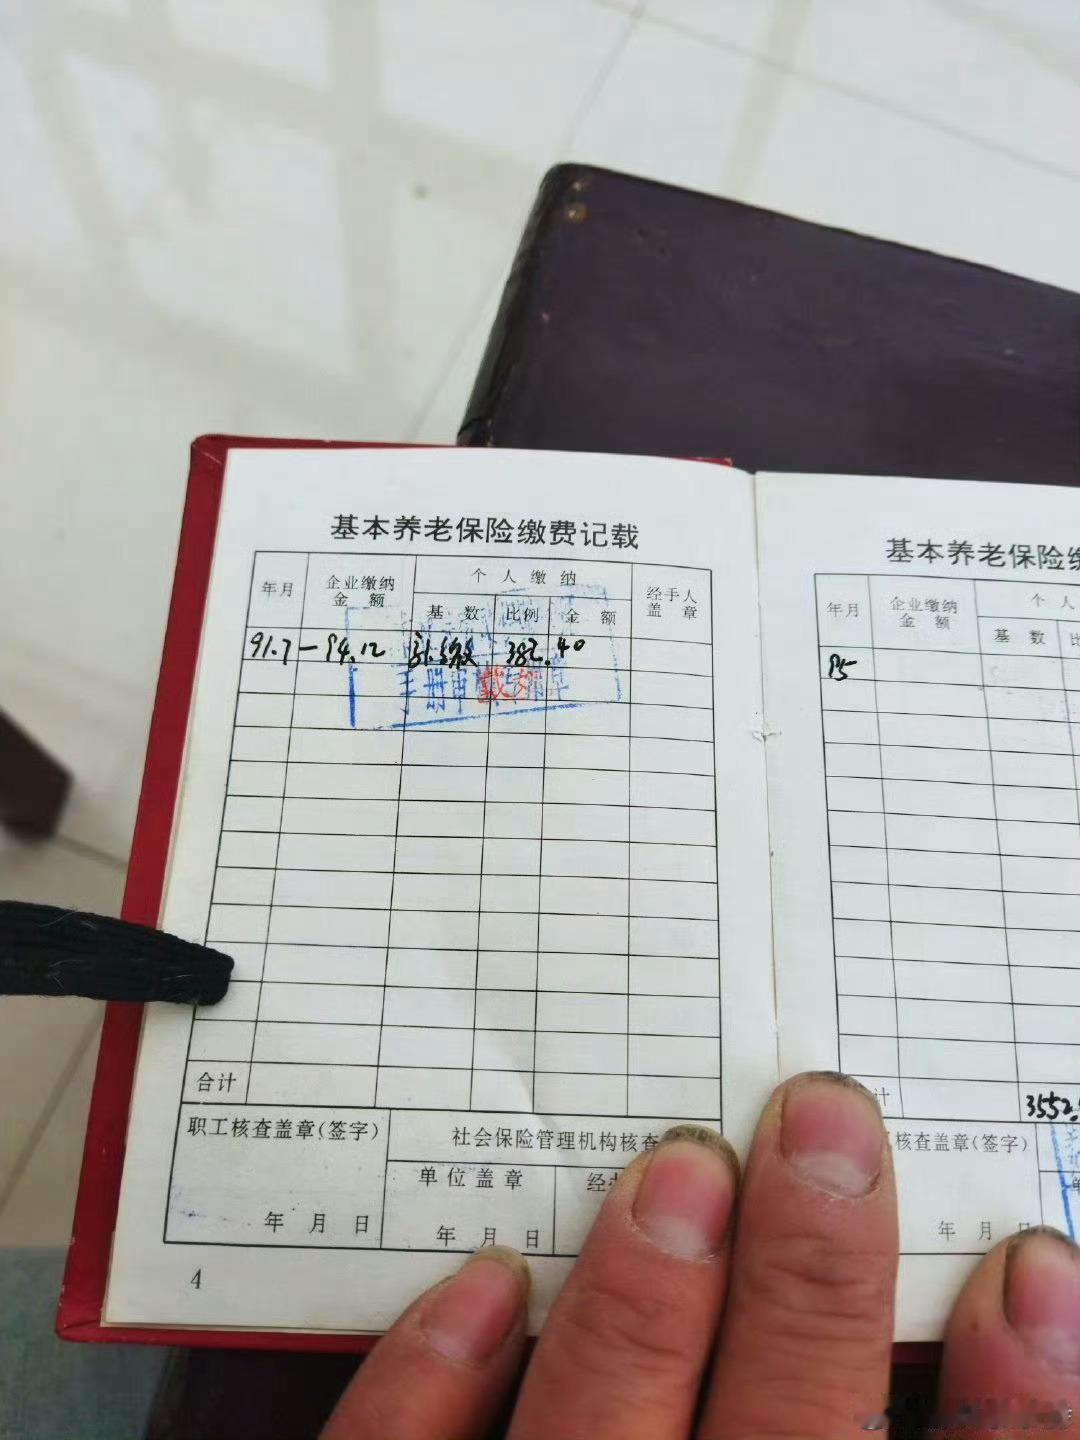 基本养老保险缴费记载
年月 企业缴纳金额 个人缴纳 经手人盖章
基数 比例 金额
91.7—94.12 382.40
手册审
合计
职工核查盖章(签字) 社会保险管理机构核查
单位盖章 经
年 月 日 年 月 日
4
基本养老保险
年月 企业缴纳金额 个人
基数 比
95
计 3552.
核查盖章(签字)
年 月